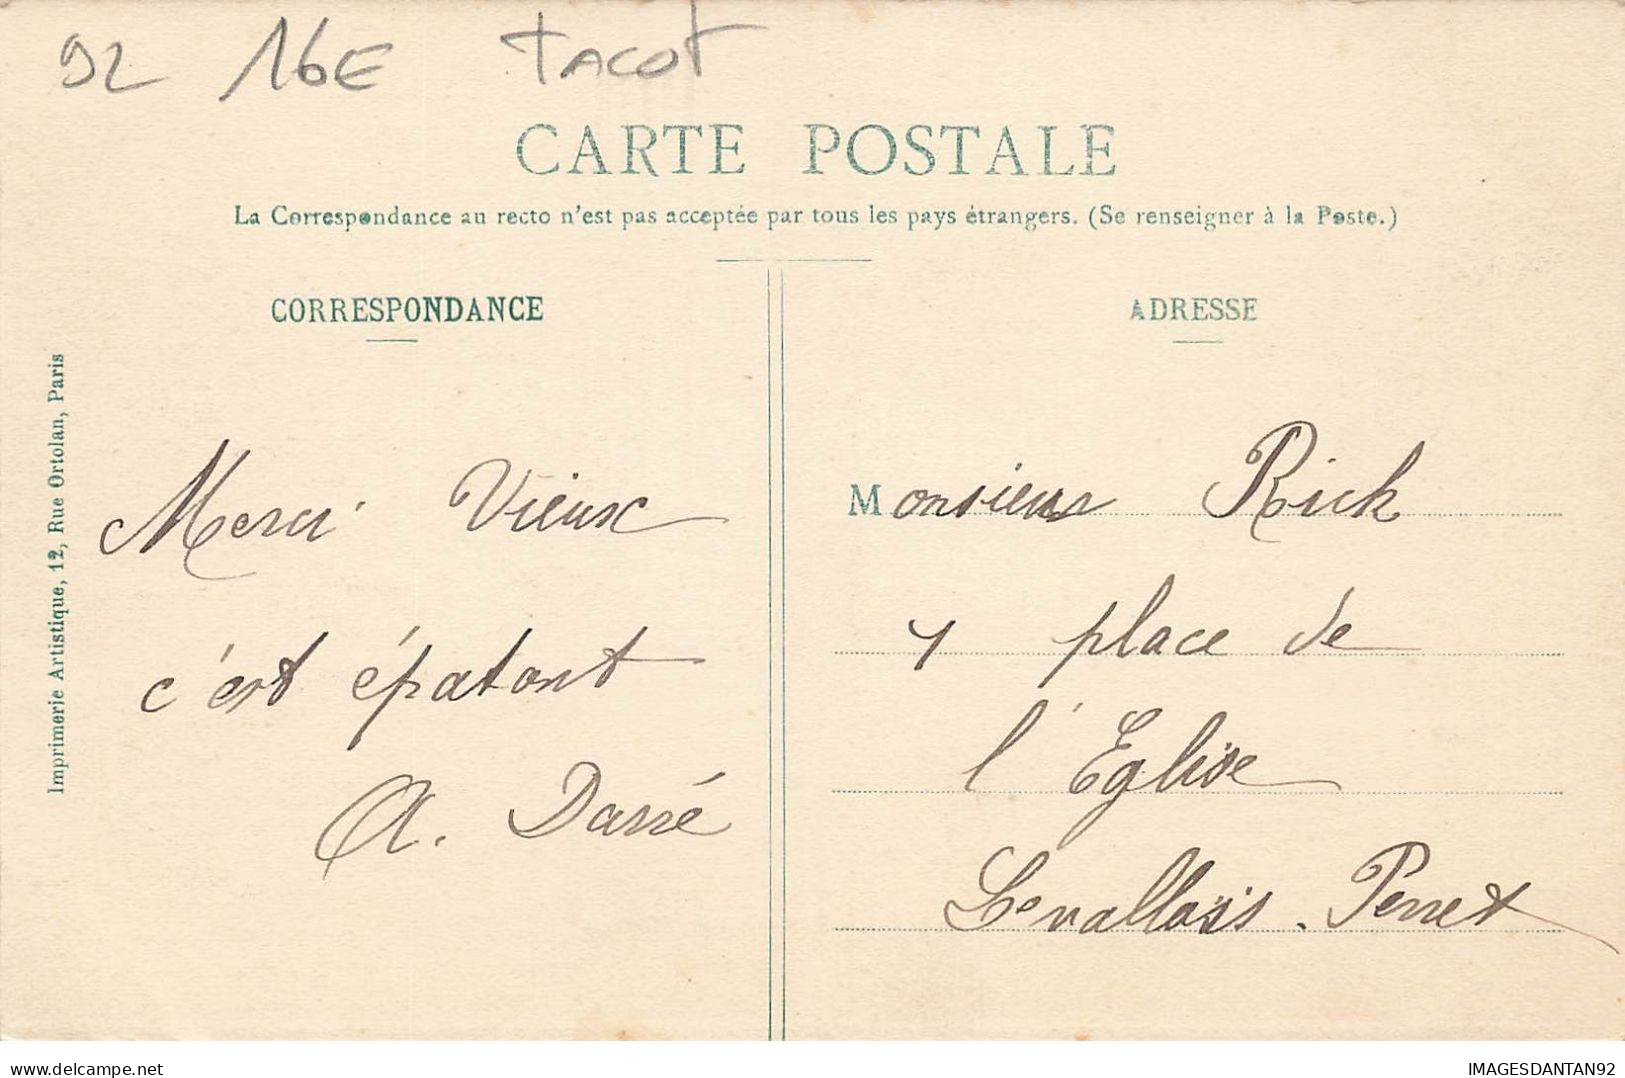 92 16E TACOT
CARTE POSTALE
La Correspondance au recto n'est pas acceptée par tous les pays étrangers. (Se renseigner à la Poste.)
CORRESPONDANCE
Merci Vieux
c'est épatant
A. Darré
Imprimerie Artistique, 12, Rue Ortolan, Paris
ADRESSE
Monsieur Rich
place de
l'Eglise
Levallois. Perret
delcampe.net
IMAGESDANTAN92